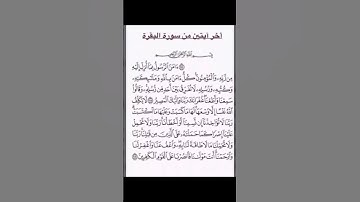 آخر آيتين من سورة البقرة
بِسْمِ اللَّهِ الرَّحْمَٰنِ الرَّحِيمِ
ءَامَنَ الرَّسُولُ بِمَا أُنزِلَ إِلَيْهِ
مِن رَّبِّهِ وَالْمُؤْمِنُونَ كُلٌّ ءَامَنَ بِاللَّهِ وَمَلَٰٓئِكَتِهِ
وَكُتُبِهِ وَرُسُلِهِ لَا نُفَرِّقُ بَيْنَ أَحَدٍ مِّن رُّسُلِهِ وَقَالُوا
سَمِعْنَا وَأَطَعْنَا غُفْرَانَكَ رَبَّنَا وَإِلَيْكَ الْمَصِيرُ ۝ لَا يُكَلِّفُ
اللَّهُ نَفْسًا إِلَّا وُسْعَهَا لَهَا مَا كَسَبَتْ وَعَلَيْهَا مَا اكْتَسَبَتْ
رَبَّنَا لَا تُؤَاخِذْنَا إِن نَّسِينَا أَوْ أَخْطَأْنَا رَبَّنَا وَلَا تَحْمِلْ
عَلَيْنَا إِصْرًا كَمَا حَمَلْتَهُ عَلَى الَّذِينَ مِن قَبْلِنَا رَبَّنَا
وَلَا تُحَمِّلْنَا مَا لَا طَاقَةَ لَنَا بِهِ وَاعْفُ عَنَّا وَاغْفِرْ لَنَا
وَارْحَمْنَا أَنتَ مَوْلَىٰنَا فَانصُرْنَا عَلَى الْقَوْمِ الْكَٰفِرِينَ ۝